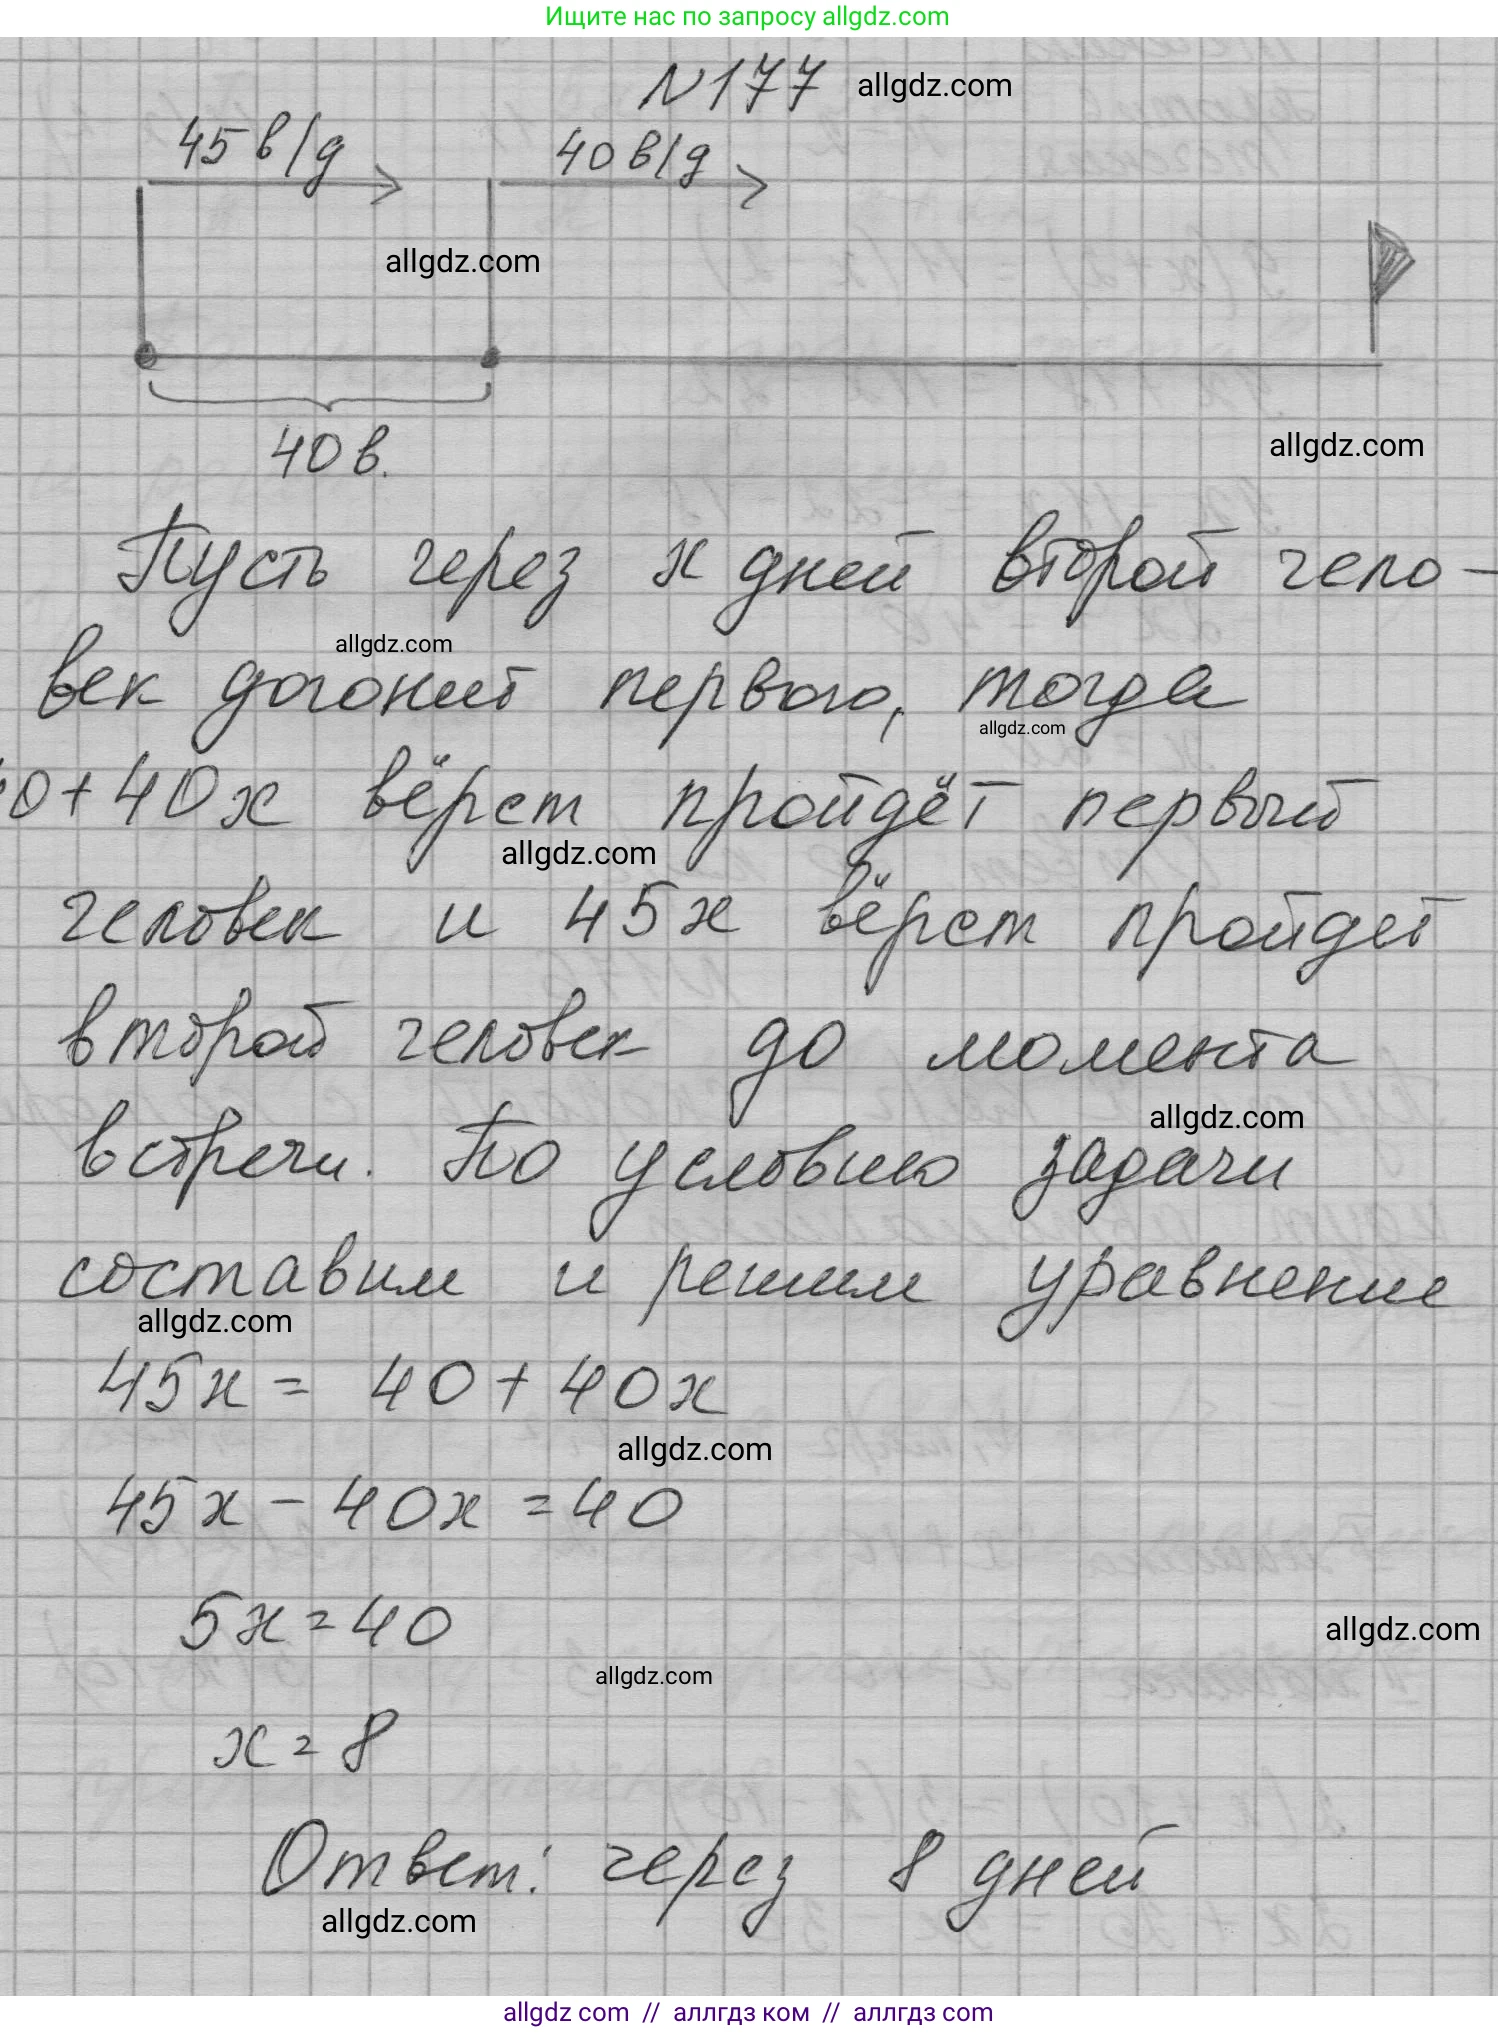 Ищите нас по запросу allgdz.com
N177 allgdz.com
45 в/д 40 в/д
allgdz.com
40 в.
allgdz.com
Пусть через x дней второй чело-
allgdz.com
век догонит первого, тогда
allgdz.com
0+40x вёрст пройдёт первый
allgdz.com
человек и 45x вёрст пройдет
второй человек до момента
allgdz.com
встречи. По условию задачи
составим и решим уравнение
allgdz.com
45x = 40+40x
allgdz.com
45x - 40x = 40
5x = 40
allgdz.com
allgdz.com
x = 8
Ответ: через 8 дней
allgdz.com
allgdz com // аллгдз ком // аллгдз com